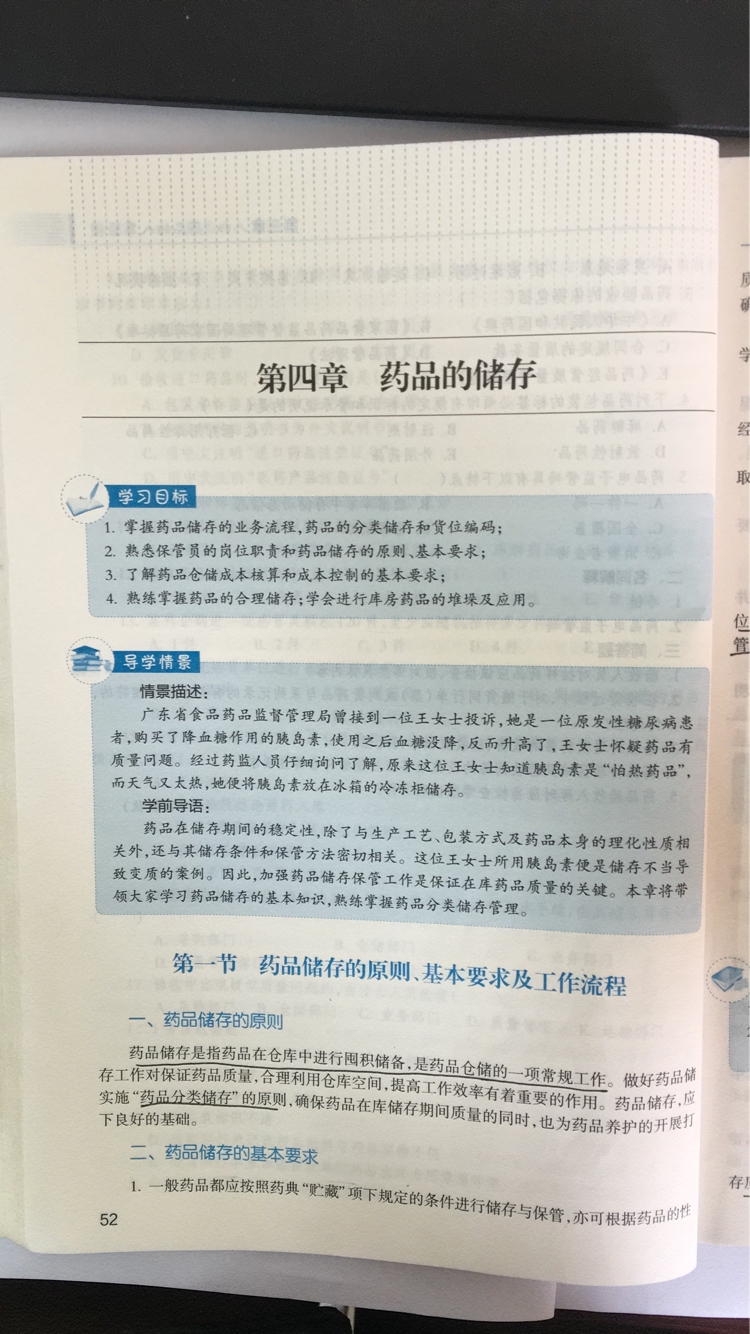 第四章 药品的储存
学习目标
1. 掌握药品储存的业务流程,药品的分类储存和货位编码;
2. 熟悉保管员的岗位职责和药品储存的原则、基本要求;
3. 了解药品仓储成本核算和成本控制的基本要求;
4. 熟练掌握药品的合理储存;学会进行库房药品的堆垛及应用。
导学情景
情景描述:
广东省食品药品监督管理局曾接到一位王女士投诉,她是一位原发性糖尿病患
者,购买了降血糖作用的胰岛素,使用之后血糖没降,反而升高了,王女士怀疑药品有
质量问题。经过药监人员仔细询问了解,原来这位王女士知道胰岛素是“怕热药品”,
而天气又太热,她便将胰岛素放在冰箱的冷冻柜储存。
学前导语:
药品在储存期间的稳定性,除了与生产工艺、包装方式及药品本身的理化性质相
关外,还与其储存条件和保管方法密切相关。这位王女士所用胰岛素便是储存不当导
致变质的案例。因此,加强药品储存保管工作是保证在库药品质量的关键。本章将带
领大家学习药品储存的基本知识,熟练掌握药品分类储存管理。
第一节 药品储存的原则、基本要求及工作流程
一、药品储存的原则
药品储存是指药品在仓库中进行囤积储备,是药品仓储的一项常规工作。做好药品储
存工作对保证药品质量,合理利用仓库空间,提高工作效率有着重要的作用。药品储存,应
实施“药品分类储存”的原则,确保药品在库储存期间质量的同时,也为药品养护的开展打
下良好的基础。
二、药品储存的基本要求
1. 一般药品都应按照药典“贮藏”项下规定的条件进行储存与保管,亦可根据药品的性
52
学
经
取
位
管